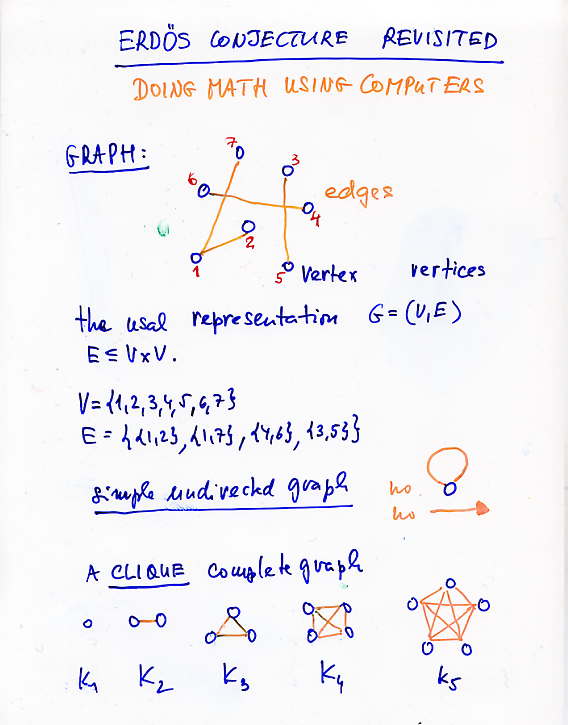 ERDÖS CONJECTURE REVISITED
DOING MATH USING COMPUTERS
GRAPH:
7
3
6
edges
4
2
1
5 vertex vertices
the usal representation G = (V, E)
E ⊆ V × V.
V = {1, 2, 3, 4, 5, 6, 7}
E = {{1,2}, {1,7}, {4,6}, {3,5}}
simple undirected graph
no
no
A CLIQUE complete graph
K1 K2 K3 K4 K5